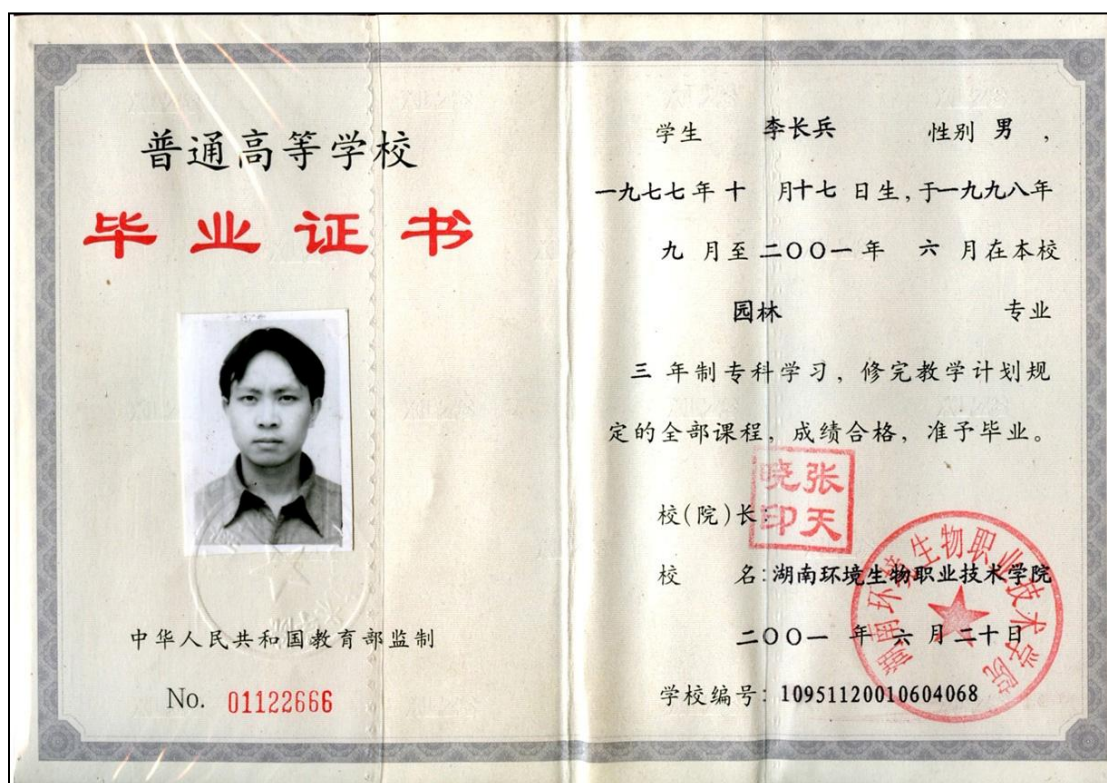 普通高等学校
毕业证书
中华人民共和国教育部监制
No. 01122666
学生 李长兵 性别 男 ，
一九七七年 十 月十七 日生，于一九九八年
九 月至 二〇〇一 年 六 月在本校
园林 专业
三 年制专科学习，修完教学计划规
定的全部课程，成绩合格，准予毕业。
校(院)长：
张天
晓印
校 名：湖南环境生物职业技术学院
湖南环境生物职业技术学院
二〇〇一 年 六 月 二十 日
学校编号：10951120010604068